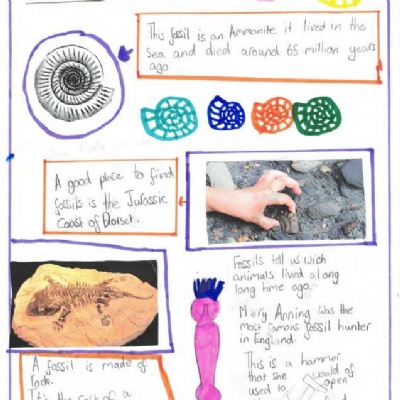 This fossil is an Ammonite it lived in the
Sea and died around 65 million years
ago
A good place to find
fossils is the Jurassic
Coast of Dorset.
Fossils tell us wich
animals lived along
long time ago.
Mary Anning was the
most famous fossil hunter
in England.
This is a hammer
that she would of
used to open
A fossil is made of
rock.
It's the of a